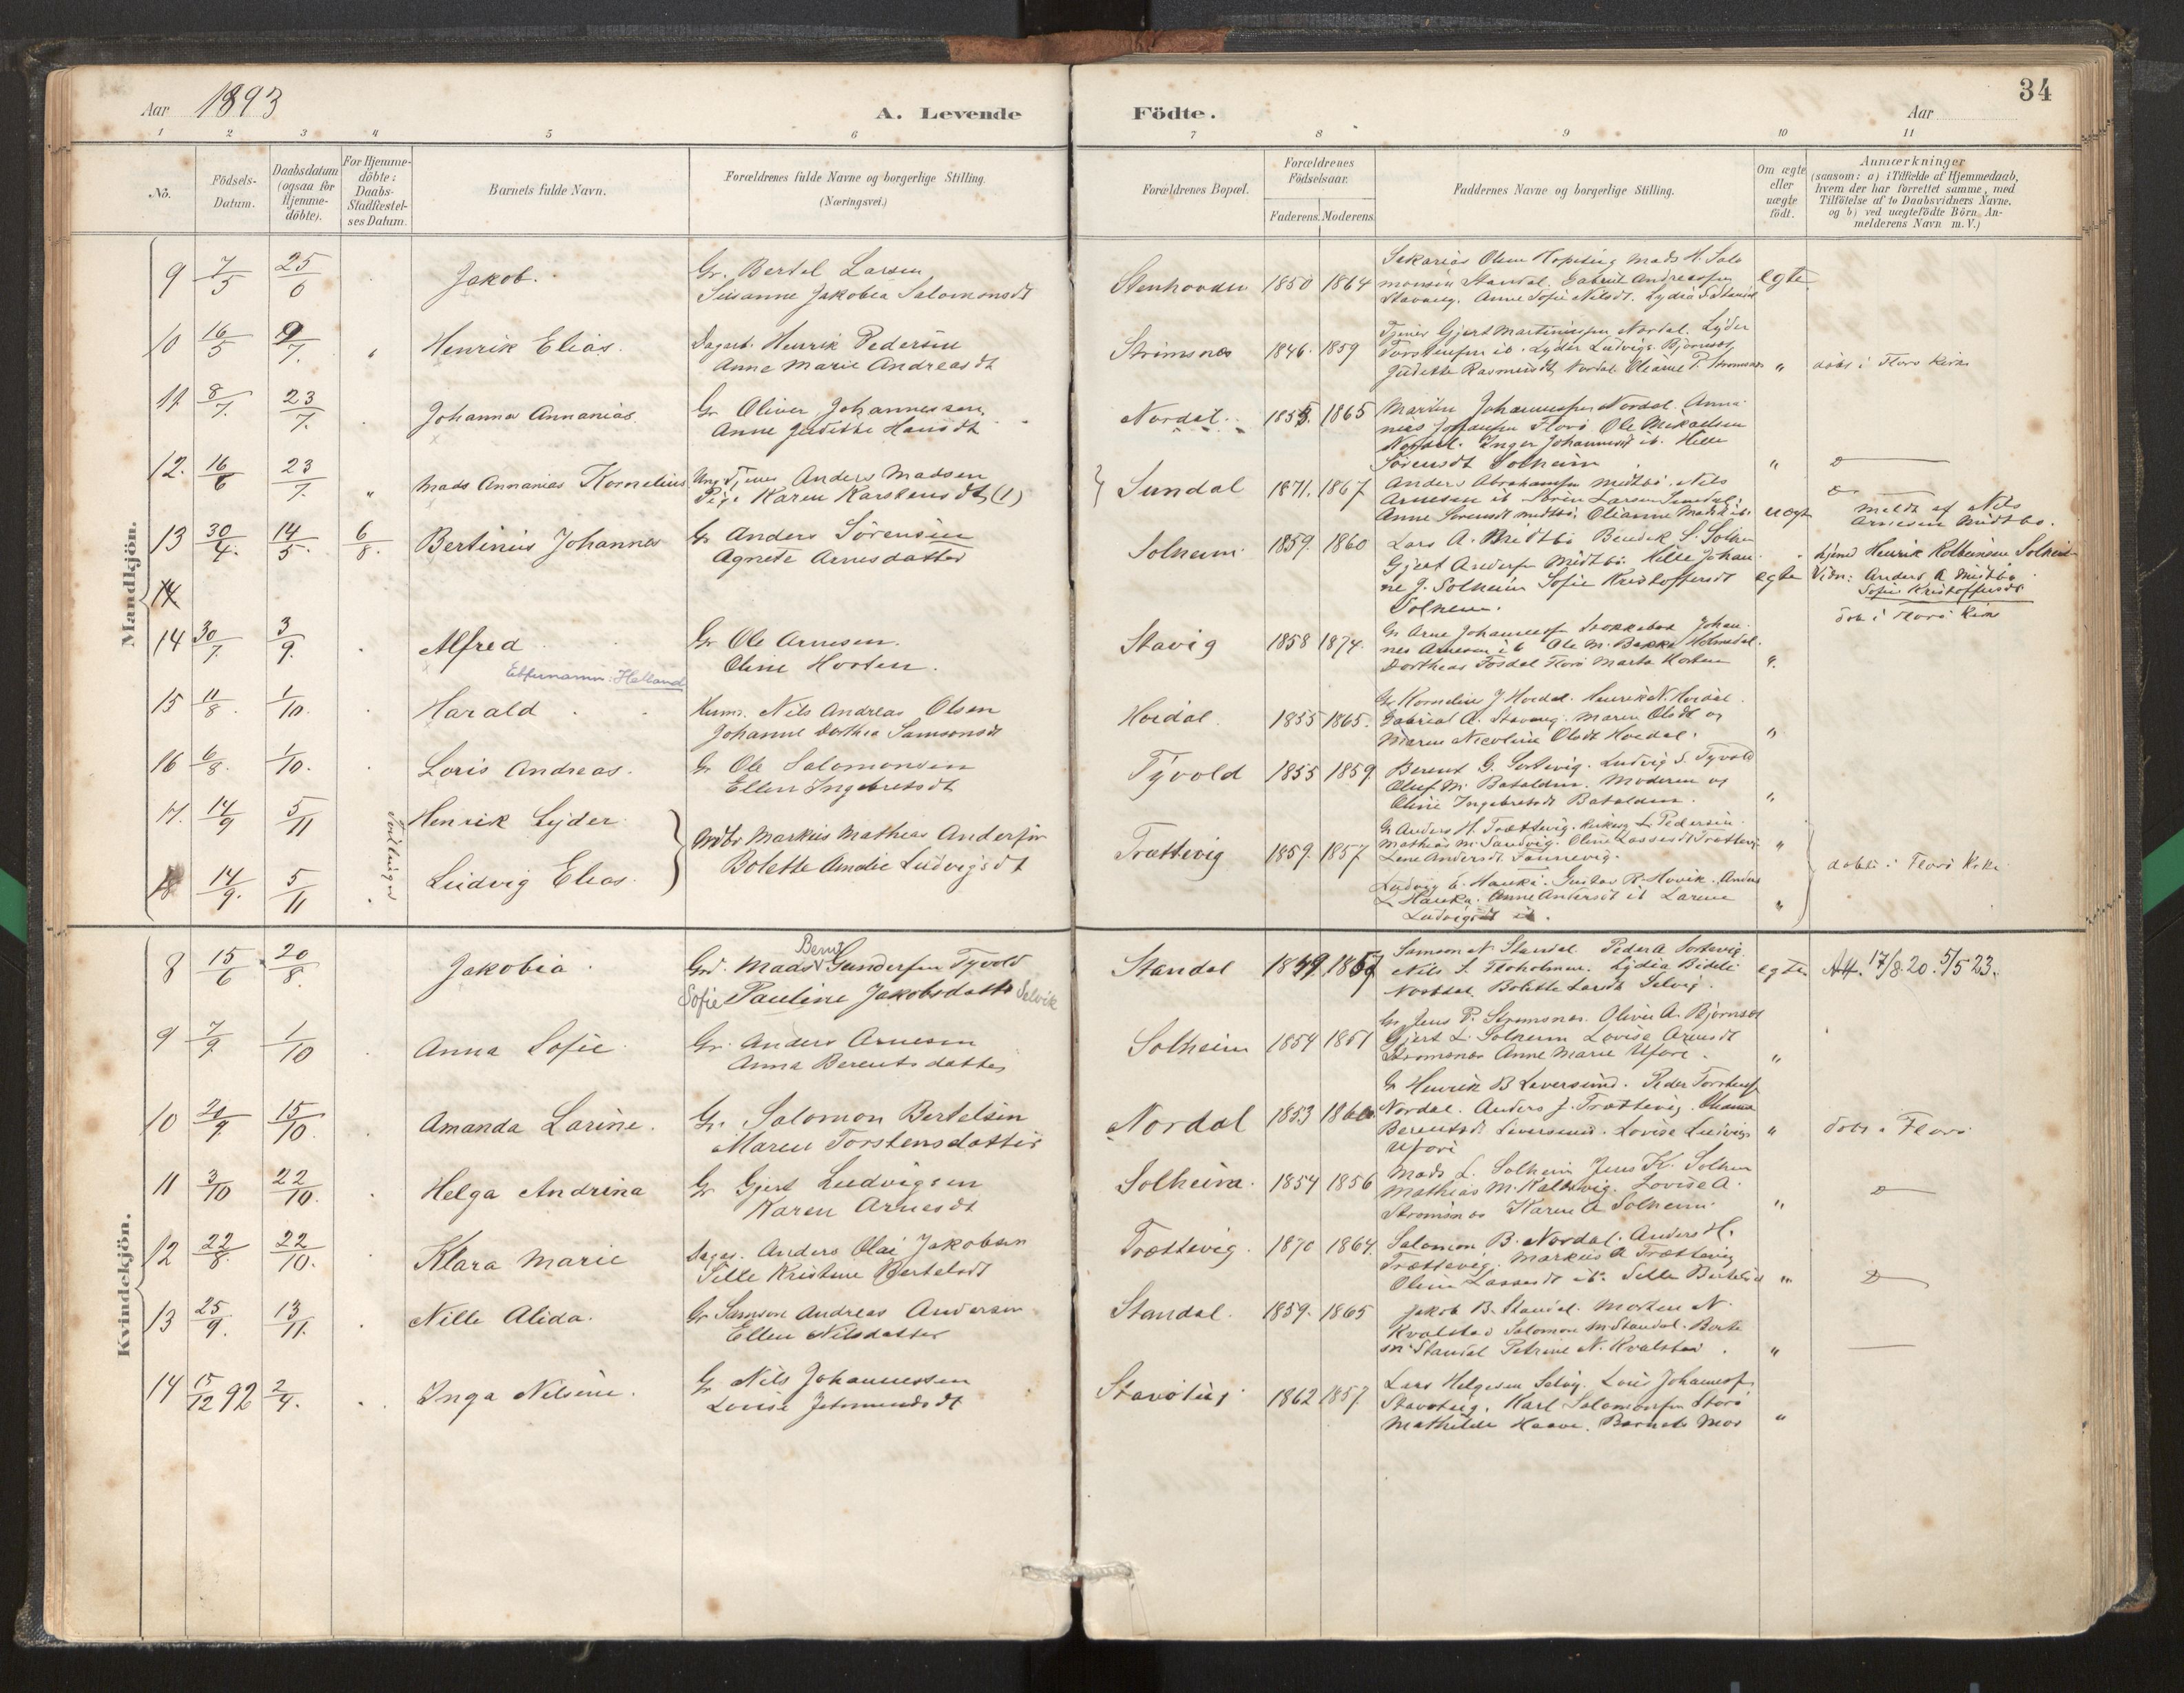 Aar 1893
A. Levende
Födte.
Aar
34
1 2 3 4 5 6 7 8 9 10 11
No.
Födsels-Datum.
Daabsdatum (ogsaa for Hjemme-döbte).
For Hjemme-döbte: Daabs-Stadfæstel-ses Datum.
Barnets fulde Navn.
Forældrenes fulde Navne og borgerlige Stilling. (Næringsvei.)
Forældrenes Bopæl.
Forældrenes Födselsaar.
Faderens. Moderens.
Faddernes Navne og borgerlige Stilling.
Om ægte eller uægte födt.
Anmærkninger
(saasom: a) i Tilfælde af Hjemmedaab,
hvem der har forrettet samme, med
Tilföielse af to Daabsvidners Navne,
og b) ved uægtefödte Börn, An-
melderens Navn m. V.)
Mandkjön.
9 7/5 25/6 Jakob. Gr. Bertel Larsen
Susanne Jakobea Salomonsdt
Stenhovden 1850 1864
Sekarias Olsen Mads H. Salo
monsen Standal. Gabriel Andreassen
Stavang. Anne Sofie Nilsdt. Lydia
egte
10 16/5 9/7. Henrik Elias. Dagarb. Henrik Pedersen
Anne Marie Andreasdt
Strømsnes 1846. 1859
Tjener Gjert Martinussen Nordal. Lyder
Torstensen ib. Lyder Ludvigs. Bjørnset
Judithe Rasmusdt Nordal Oleane P. Strømsnes
" døbt i Florø Kirke
11 8/7. 23/7. Johannes Annanias. Gr Oliver Johannessen
Anne Judithe Hansdt
Nordal. 1855. 1865
Martin Johannessen Nordal. Anna
nias Florø Ole Mikaelsen
Nordal. Inger Johannesdt ib. Helle
Sørensdt Solheim "
12. 16/6 23/7. " Mads Annanias Kornelius Ung. Tjener Anders Madsen
Pige Karen Karstensdt (1)
Sundal 1871. 1867
Anders Abrahamsen Midtbø. Nils
Arnesen ib Sørin Larsen Sundal.
Anne Sørensdt Midtbø. Olianne Madsdt ib.
uegt
meldt af Nils
Arnesen Midtbø.
13 30/4. 14/5. 6/8. Bertinius Johannes Gr Anders Sørensen
Agnete Arnesdatter
Solheim 1859. 1860
Lars A. Midtbø Bendik S. Solhe
Gjert Anders Midtbø. Helle Johan
ne J. Solheim Sofie Kristoffersdt
Solheim.
egte
Hjemd Henrik Kolbeinsen Solheim
Vidn: Anders A Midtbø
Sofie Kristoffersdt
14
14 30/7. 3/9. Alfred Gr Ole Arnesen.
Oline Horten.
Stavig 1858 1874.
Gr Arne Johannessen Johan
nes Arnesen ib Ole M. Bakke Holmedal.
Dorthea Fosdal Florø Marta Horten
" døbt i Florø Kirke
Etternamn: Helland
15 11/8. 1/10. Harald. Husm. Nils Andreas Olsen
Johanne Dorthea Samsonsdt
Hovdal. 1855 1865.
Gr Kornelius J Hovdal. Henrik N. Hovdal.
Gabriel A. Stavang. Maren Olsdt og
Maren Nicoline Olsdt Hovdal. "
16 6/8. 1/10. Loris Andreas. Gr Ole Salomonsen
Ellen Ingebretsdt
Tyvold 1855 1859.
Berent G. Sortevig. Ludvig S. Tyvold
Oluf M. Batalden. Moderen og
Oline Ingebretsdt Batalden. "
17. 14/9 5/11 Henrik Lyder. Tvillinger
Markus Mathias Andersen
Bolette Amalie Ludvigsdt
Trættevig 1859. 1857
Gr Anders H. Trættevig. L Pedersen
Mathias M. Sandvig. Oline Lassesdt Trættevig
Lene Andersdt Fannevig. "
døbte i Florø Kirke
18 14/9. 5/11 Ludvig Elias.
Ludvig E. Hauke. Gustav R. Hovik. Anders
L Hauka. Anne Andersdt ib Larene
Ludvigsdt ib. "
Kvindekjön.
8 15/6 20/8. Jakobia. Grd. Mads Bern Gundersen Tyvold
Sofie Pauline Jakobsdatter Selvik
Standal 1849 1857
Samson N. Standal Peder A Sortevig
Nils S. Floholmen. Lydia
Nordal. Bolette Larsdt Selvig.
egte Att. 17/8.20. 5/5 23.
9 7/9. 1/10 Anna Sofie. Gr. Anders Arnesen
Anna Berentsdatter
Solheim 1854 1851
Gr Jens P. Strømsnes. Olivie A. Bjørnset
Gjert L. Solheim Lovise Arnesdt
Strømsnes Anne Marie Ufore. "
10 20/9. 15/10. Amanda Larine. Gr. Salomon Bertelsen
Maren Torstensdatter
Nordal 1853 1860.
Gr Henrik B Leversund. Peder Torstens
Nordal. Anders J. Trættevig.
Berentsdt Leversund. Lovise Ludvigs
Ufore
" døbt i Florø
11 3/10 22/10. Helga Andrina Gr Gjert Ludvigsen
Karen Arnesdt
Solheim. 1854 1856
Mads L. Solheim Jens K. Solheim
Mathias M. Kallevig. Lovise A.
Strømsnes Karen A Solheim. "
12 22/8. 22/10. Klara Marie Dagar. Anders Olai Jakobsen
Sille Kristine Bertelsdt
Trættevig. 1870 1864.
Salomon B. Nordal. Anders H.
Trættevig. Markus A Trættevig
Oline Lassesdt ib. Sille Bertelsd "
13 25/9. 13/11. Nille Alida. Gr Samson Andreas Andersen
Ellen Nilsdatter
Standal. 1859. 1865
Jakob B. Standal. Morten N.
Kvalstad Salomon M Standal. Berte
M Standal Petrine N. Kvalstad. "
14 15/12 92 2/4. Inga Nilsine. Gr Nils Johannessen
Lovise
Stavøteig. 1862 1857.
Lars Helgesen Selvig. Loris Johannessen
Stavøteig. Karl Salomonsen Storø
Mathilde Haave. Barnets Mor "